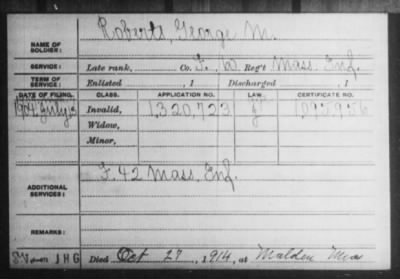 NAME OF SOLDIER: Roberts, George M.
SERVICE: Late rank, Co. F, W, Reg't Mass. Inf.
TERM OF SERVICE: Enlisted , 1 Discharged , 1
DATE OF FILING. CLASS. APPLICATION NO. LAW. CERTIFICATE NO.
1904, July Invalid, 1,320,723 1,095,956
Widow,
Minor,
ADDITIONAL SERVICES: F. 42 Mass. Inf.
REMARKS:
JHG Died Oct 27, 1914, at Malden Mass